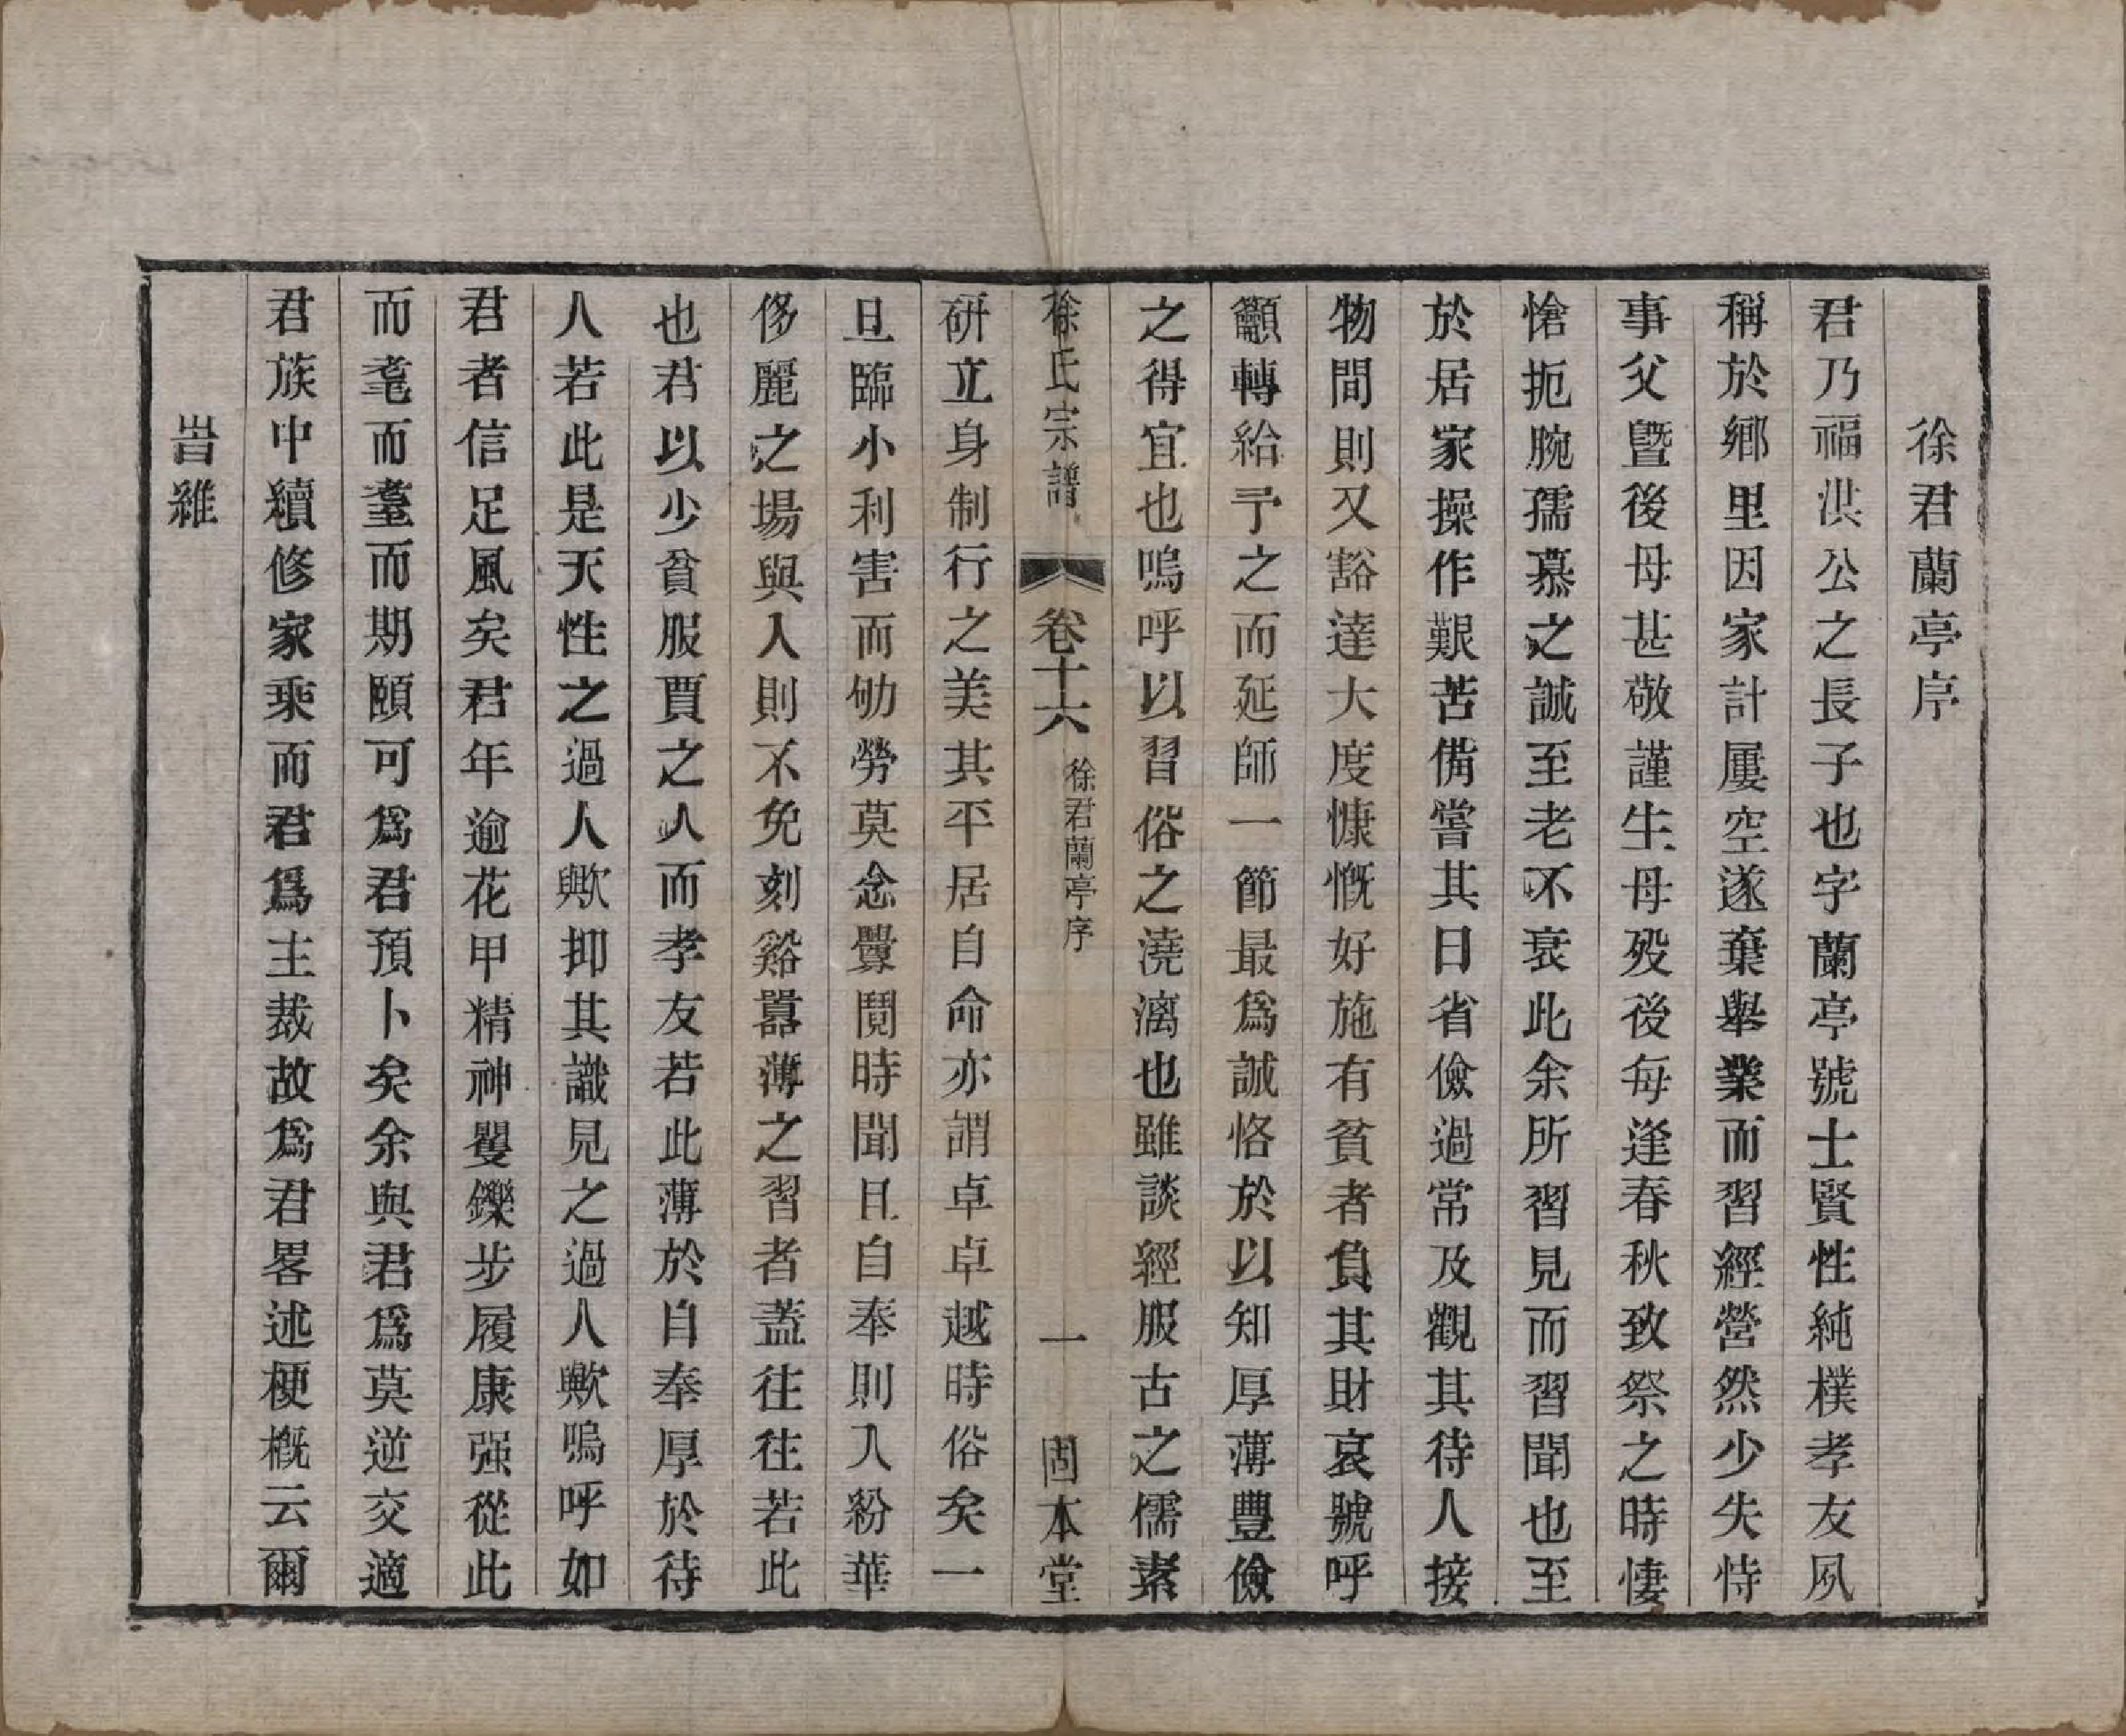 徐君蘭亭序
君乃福洪公之長子也字蘭亭號士賢性純樸孝友夙
稱於鄉里因家計屢空遂棄舉業而習經營然少失恃
事父暨後母甚敬謹生母殁後每逢春秋致祭之時悽
愴扼腕孺慕之誠至老不衰此余所習見而習聞也至
於居家操作艱苦備嘗其日省儉過常及觀其待人接
物間則又豁達大度慷慨好施有貧者負其財哀號呼
籲轉給予之而延師一節最爲誠恪於以知厚薄豐儉
之得宜也嗚呼以習俗之澆漓也雖談經服古之儒素
徐氏宗譜 卷十六 徐君蘭亭序 一 固本堂
研立身制行之美其平居自命亦謂卓卓越時俗矣一
旦臨小利害而劬勞莫念釁鬩時聞且自奉則入紛華
侈麗之場與人則不免刻谿囂薄之習者蓋往往若此
也君以少貧服賈之人而孝友若此薄於自奉厚於待
人若此是天性之過人歟抑其識見之過人歟嗚呼如
君者信足風矣君年逾花甲精神矍鑠步履康强從此
而耄而耋而期頤可爲君預卜矣余與君爲莫逆交適
君族中續修家乘而君爲主裁故爲君畧述梗概云爾
旹維